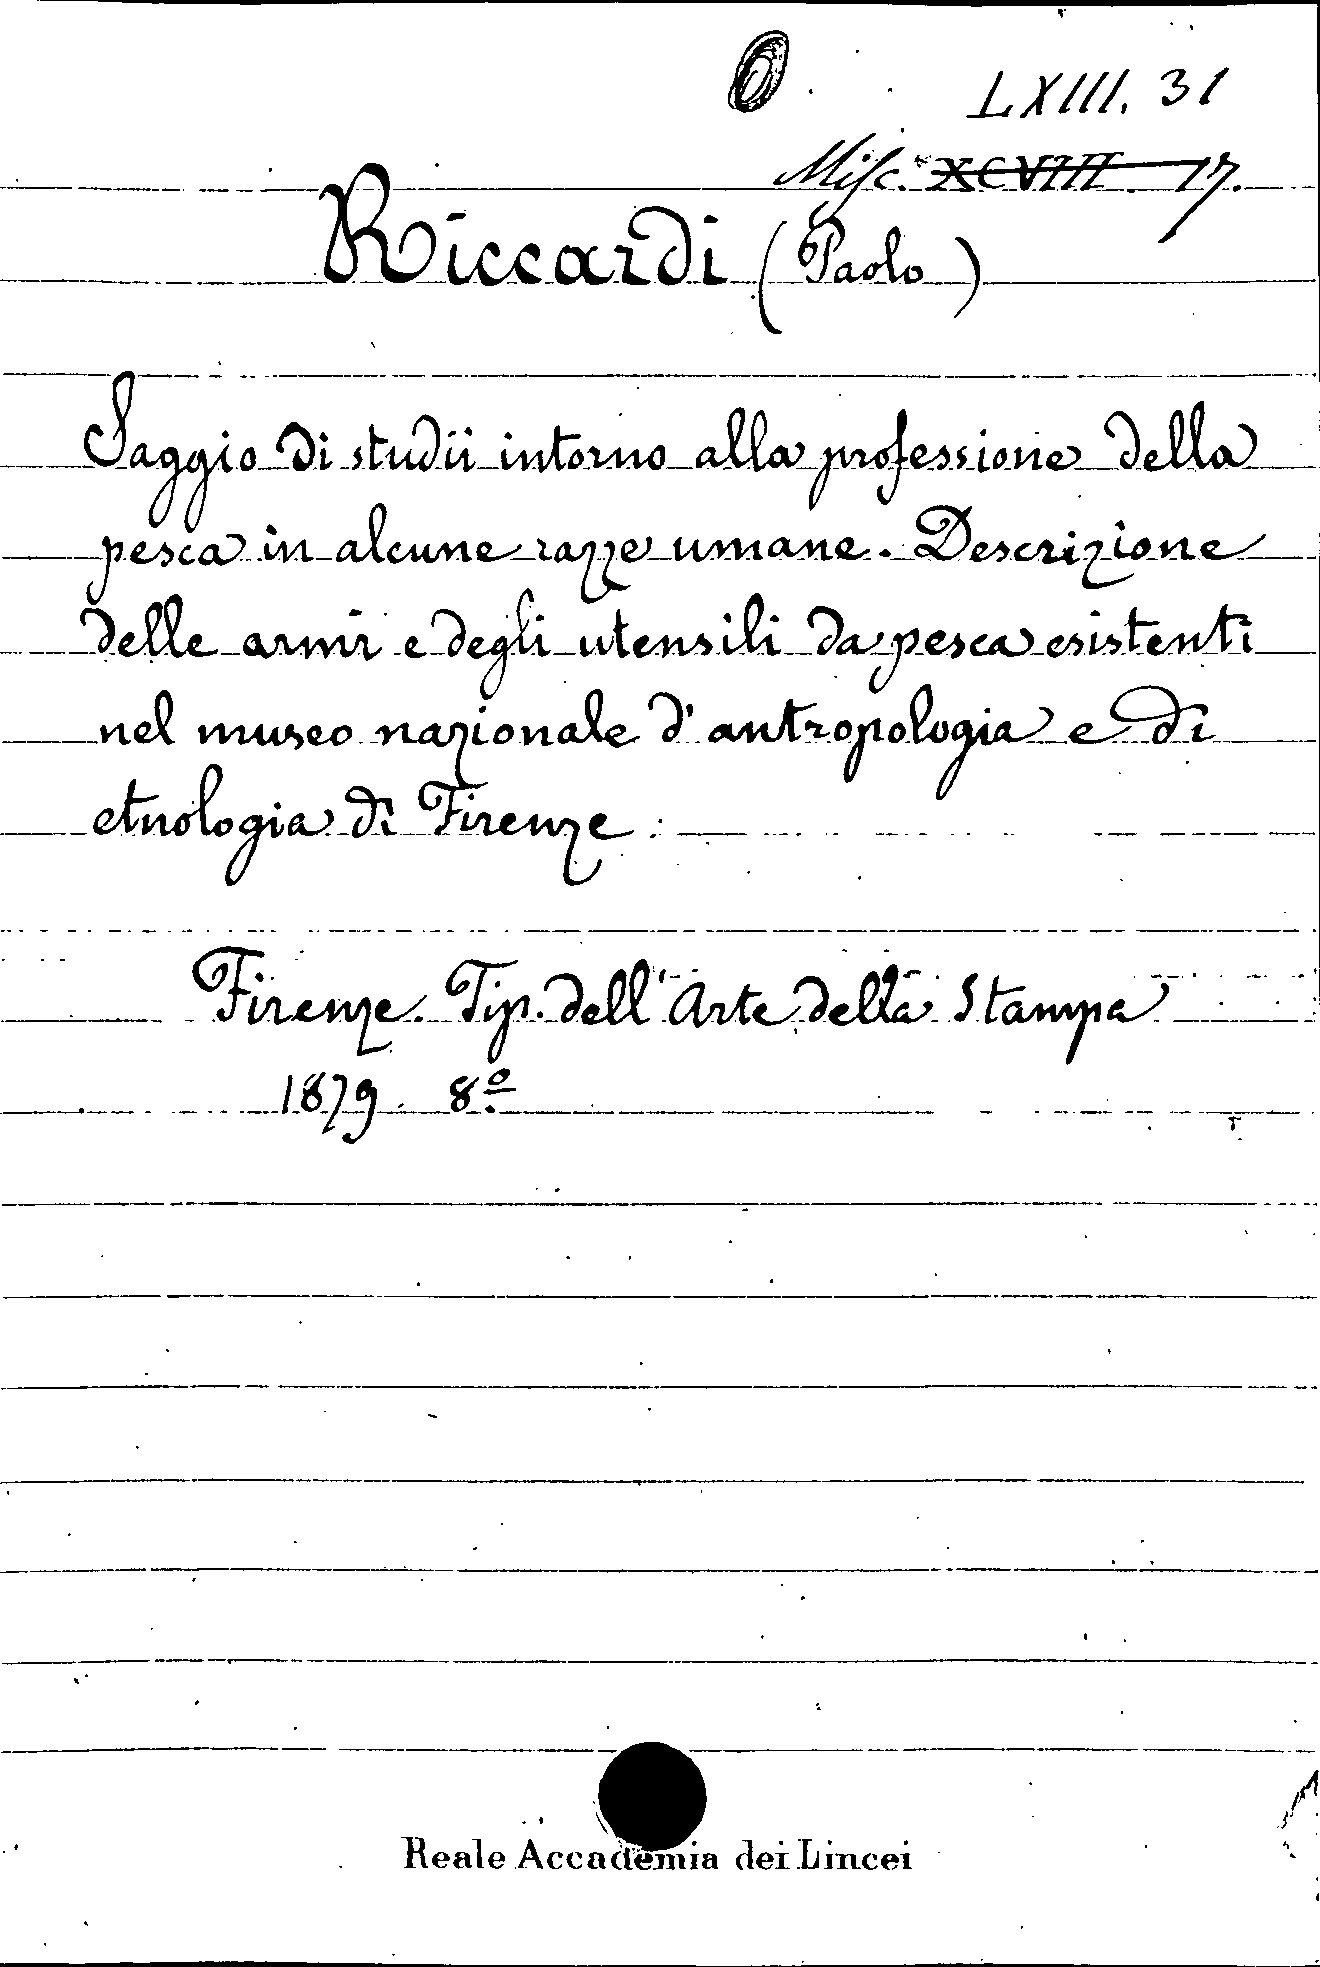 LXIII. 31
Misc. XCVIII. 17.
Riccardi (Paolo)
Saggio di studii intorno alla professione della
pesca in alcune razze umane. Descrizione
delle armi e degli utensili da pesca esistenti
nel museo nazionale d'antropologia e di
etnologia di Firenze
Firenze. Tip. dell'Arte della Stampa
1879 8º
Reale Accademia dei Lincei